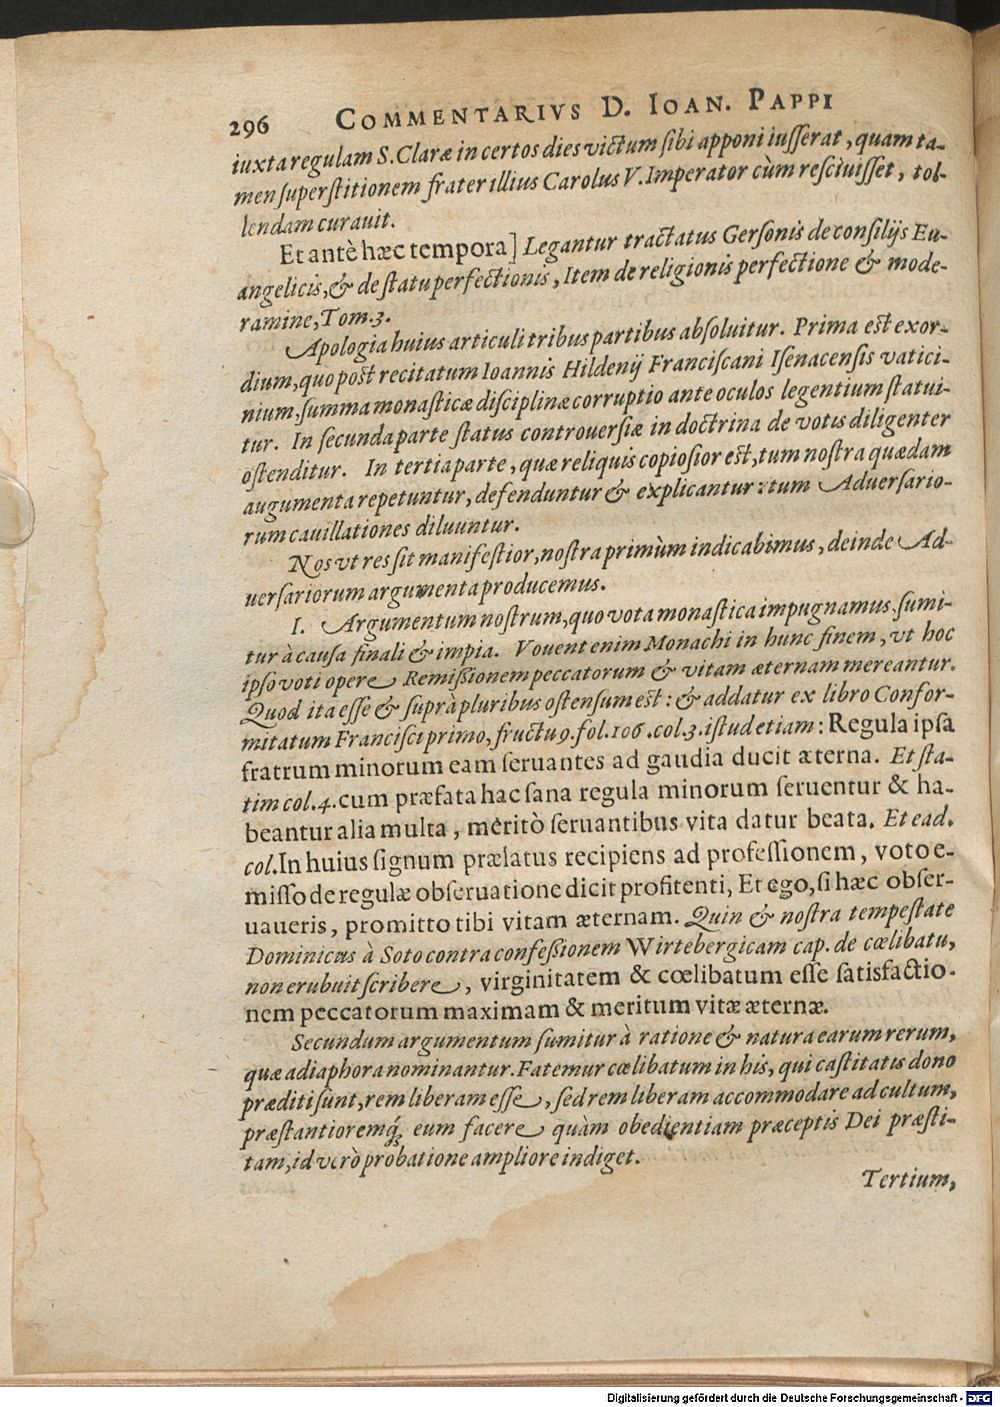 296 COMMENTARIVS D. IOAN. PAPPI
iuxta regulam S. Claræ in certos dies victum sibi apponi iusserat, quam ta-
men superstitionem frater illius Carolus V. Imperator cùm resciuisset, tol-
lendam curauit.
Et antè hæc tempora] Legantur tractatus Gersonis de consilijs Eu-
angelicis, & de statu perfectionis, Item de religionis perfectione & mode-
ramine, Tom. 3.
Apologia huius articuli tribus partibus absoluitur. Prima est exor-
dium, quo post recitatum Ioannis Hildenij Franciscani Isenacensis vatici-
nium, summa monasticæ disciplinæ corruptio ante oculos legentium statui-
tur. In secunda parte status controuersiæ in doctrina de votis diligenter
ostenditur. In tertia parte, quæ reliquis copiosior est, tum nostra quædam
augumenta repetuntur, defenduntur & explicantur: tum Aduersario-
rum cauillationes diluuntur.
Nos vt res sit manifestior, nostra primùm indicabimus, deinde Ad-
uersariorum argumenta producemus.
I. Argumentum nostrum, quo vota monastica impugnamus, sumi-
tur à causa finali & impia. Vouent enim Monachi in hunc finem, vt hoc
ipso voti opere Remissionem peccatorum & vitam æternam mereantur.
Quod ita esse & suprà pluribus ostensum est: & addatur ex libro Confor-
mitatum Francisci primo, fructu 9. fol. 106. col. 3. istud etiam: Regula ipsa
fratrum minorum eam seruantes ad gaudia ducit æterna. Et sta-
tim col. 4. cum præfata hac sana regula minorum seruentur & ha-
beantur alia multa, meritò seruantibus vita datur beata. Et ead.
col. In huius signum prælatus recipiens ad professionem, voto e-
misso de regulæ obseruatione dicit profitenti, Et ego, si hæc obser-
uaueris, promitto tibi vitam æternam. Quin & nostra tempestate
Dominicus à Soto contra confessionem Wirtebergicam cap. de cœlibatu,
non erubuit scribere, virginitatem & cœlibatum esse satisfactio-
nem peccatorum maximam & meritum vitæ æternæ.
Secundum argumentum sumitur à ratione & natura earum rerum,
quæ adiaphora nominantur. Fatemur cœlibatum in his, qui castitatis dono
præditi sunt, rem liberam esse, sed rem liberam accommodare ad cultum,
præstantioremq́; eum facere quàm obedientiam præceptis Dei præsti-
tam, id verò probatione ampliore indiget.
Tertium,
Digitalisierung gefördert durch die Deutsche Forschungsgemeinschaft - DFG